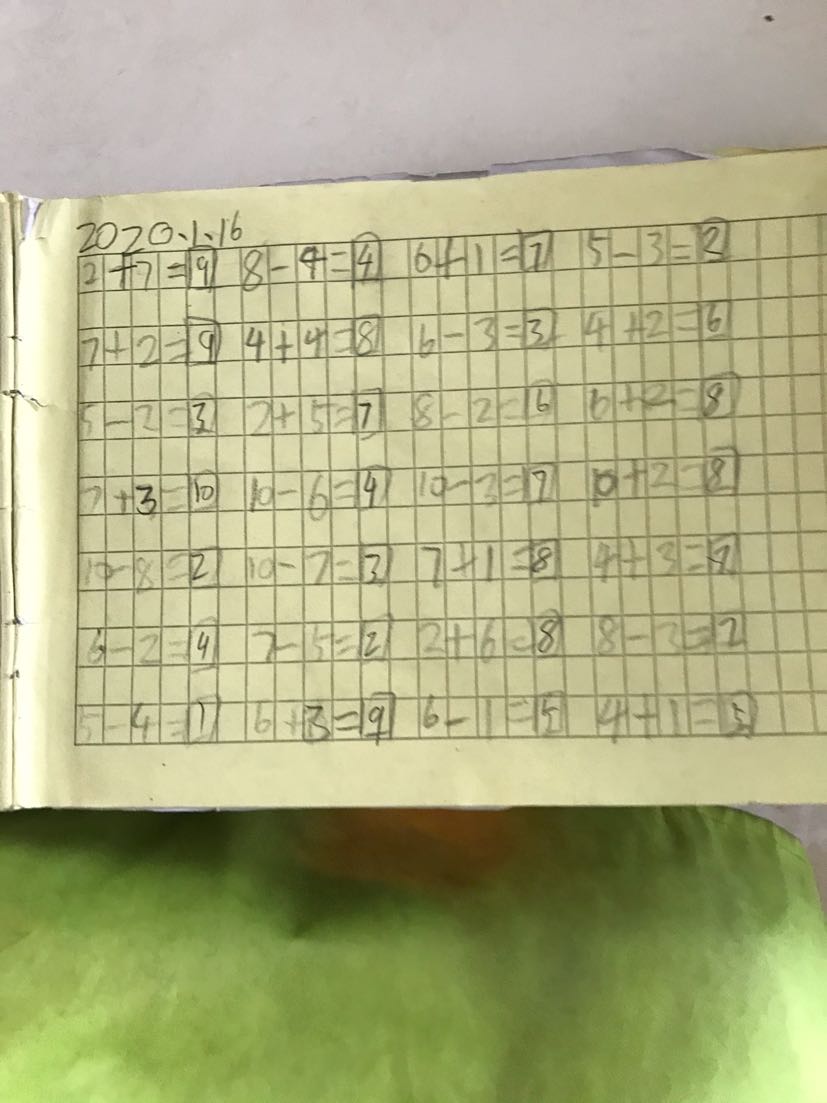 2020.1.16
2+7=9 8-4=4 6+1=7 5-3=2
7+2=9 4+4=8 6-3=3 4+2=6
5-2=3 2+5=7 8-2=6 6+2=8
7+3=10 10-6=4 10-3=7 10+2=8
10-8=2 10-7=3 7+1=8 4+3=7
6-2=4 7-5=2 2+6=8 8-3=2
5-4=1 6+3=9 6-1=5 4+1=5